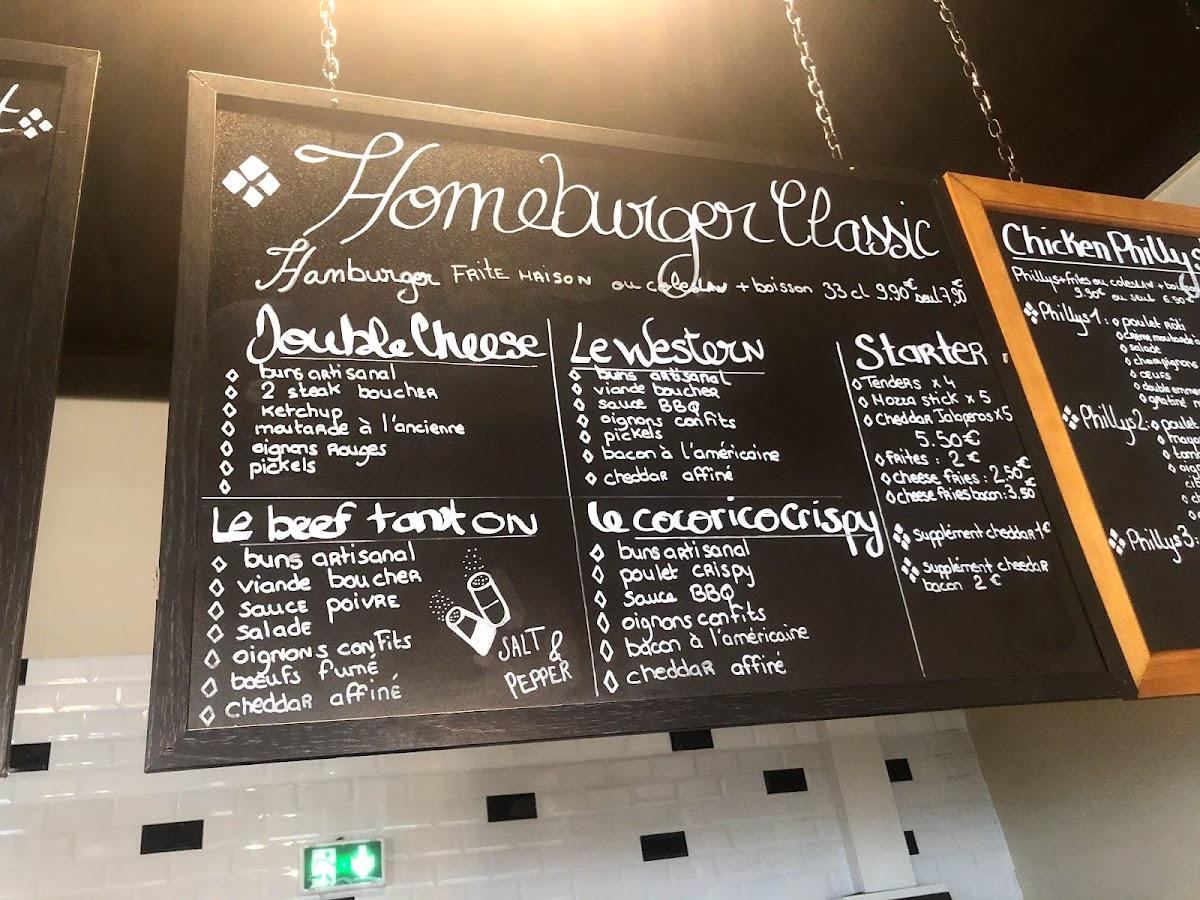 Homeburger Classic
Hamburger FRITE MAISON ou coleslaw + boisson 33 cl 9.90€ seul 7,90€
Double Cheese
buns artisanal
2 steak boucher
Ketchup
moutarde à l'ancienne
oignons Rouges
pickels
Le Western
buns artisanal
viande boucher
sauce BBQ
oignons confits
pickels
bacon à l'américaine
cheddar affiné
Starter
Tenders x 4
Mozza stick x 5
Cheddar Jalapenos x5
5.50€
frites : 2€
cheese fries : 2,50€
cheese fries bacon : 3,50€
Supplément cheddar 1€
Supplément cheedar
bacon 2€
Le beef
buns artisanal
viande boucher
sauce poivre
salade
oignons confits
boeufs fumé
cheddar affiné
SALT &
PEPPER
Le cocorico crispy
buns artisanal
poulet crispy
sauce BBQ
oignons confits
bacon à l'américaine
cheddar affiné
Chicken Phillys
Phillys+fries ou coleslaw +
9.90€ ou seul 6.90€
Phillys 1 : poulet Rôti
crème moutarde à
salade
champignons
oeufs
double
gratiné
Phillys 2 : poulet
Phillys 3 :